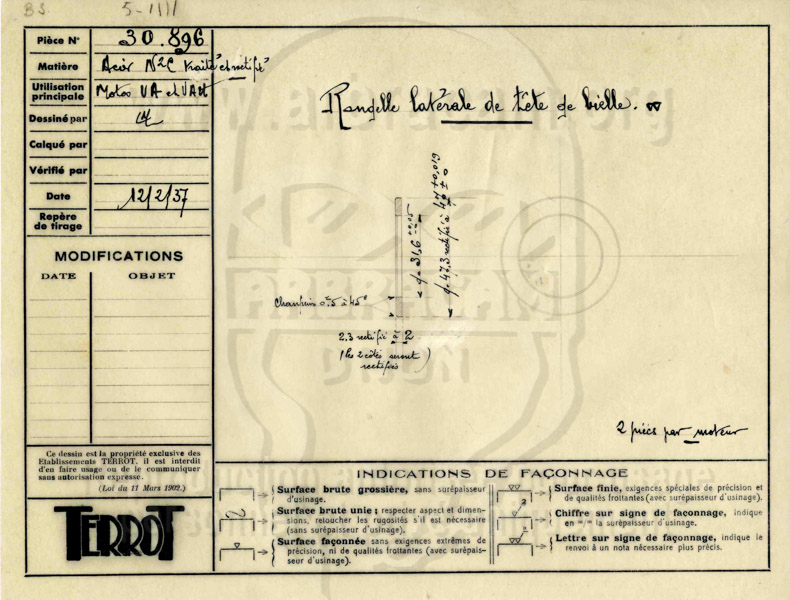 BS 5-1111
Pièce N° 30.896
Matière Acier N2C traité et rectifié
Utilisation principale Motos VA et VAM
Dessiné par
Calqué par
Vérifié par
Date 12/2/37
Repère de tirage
MODIFICATIONS
DATE OBJET
Rondelle latérale de tête de bielle.
Chanfrein 0.5 à 45°
φ 31,6
φ 47,3 rectifié à
2,3 rectifié à 2
(les 2 côtés seront rectifiés)
2 pièces par moteur
Ce dessin est la propriété exclusive des
Etablissements TERROT, il est interdit
d'en faire usage ou de le communiquer
sans autorisation expresse.
(Loi du 11 Mars 1902.)
TERROT
INDICATIONS DE FAÇONNAGE
Surface brute grossière, sans surépaisseur
d'usinage.
Surface brute unie ; respecter aspect et dimen-
sions, retoucher les rugosités s'il est nécessaire
(sans surépaisseur d'usinage).
Surface façonnée sans exigences extrêmes de
précision, ni de qualités frottantes (avec surépais-
seur d'usinage).
Surface finie, exigences spéciales de précision et
de qualités frottantes (avec surépaisseur d'usinage).
Chiffre sur signe de façonnage, indique
en m/m la surépaisseur d'usinage.
Lettre sur signe de façonnage, indique le
renvoi à un nota nécessaire plus précis.